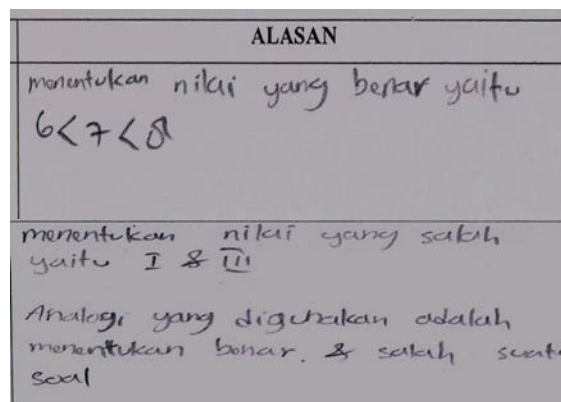 ALASAN
menentukan nilai yang benar yaitu
6<7<8
menentukan nilai yang salah
yaitu I & III
Analogi yang digunakan adalah
menentukan benar. & salah suatu
soal